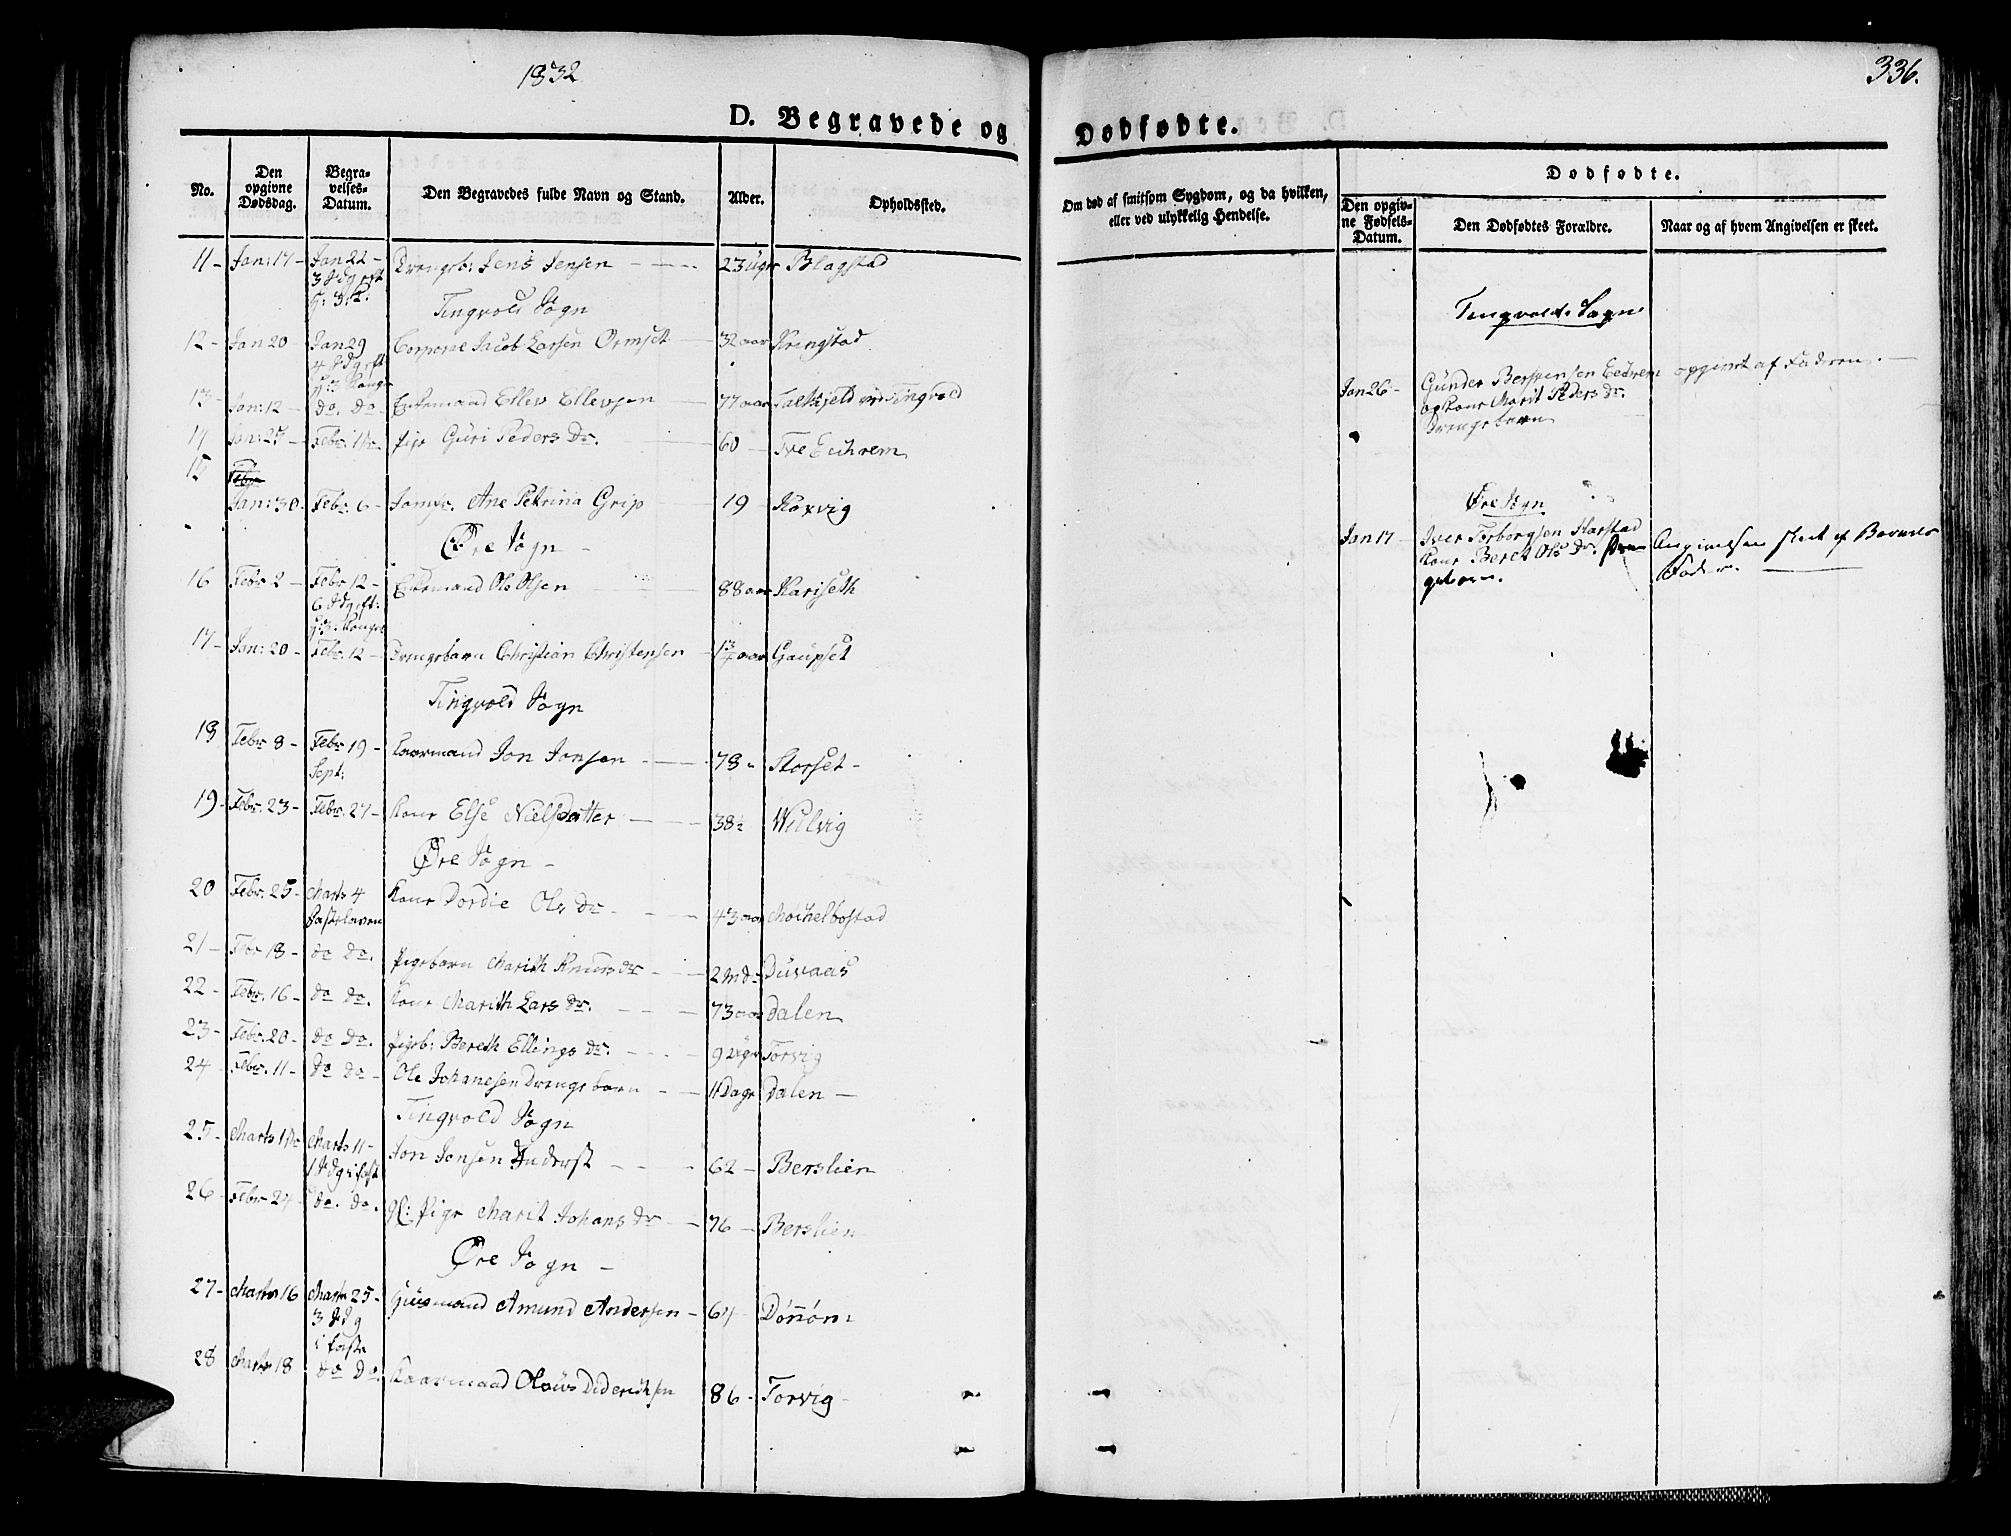 1832
336.
D. Begravede og
Dødfødte.
No.
Den opgivne Dødsdag.
Begravelses-Datum.
Den Begravedes fulde Navn og Stand.
Alder.
Opholdssted.
Om død af smitsom Sygdom, og da hvilken, eller ved ulykkelig Hendelse.
Dødfødte.
Den opgivne Fødsels-Datum.
Den Dødfødtes Forældre.
Naar og af hvem Angivelsen er skeet.
11 - Jan: 17 - Jan 22 - Drengeb: Jens Jensen 23 Uger Blagstad
Tingvold Sogn
12 - Jan 20 Jan 29 Corporal Jacob Larsen Ormset 32 aar Kringstad
13 - Jan: 12 - do. do - Enkemand Ellev Ellevsen 77 aar
14 Jan: 27 - Pige Guri Peders Dr. 60 -
15 Jan: 30 - Febr. 6 - Ane Petrina Grip 19
Øre Sogn -
16 Febr 2 - Febr 12 - Enkemand Ole Olsen 88 aar Kariseth
17 - Jan: 20 - Febr. 12 - Drengebarn Christian Christensen Gaupset
Tingvold Sogn
18 Febr 8 - Febr 19 - Sept: Kaarmand Jon Jonsen 78 - Storset -
19 - Febr. 23 - Febr. 27 - Kone Else Nielsdatter 38 Wulvig
Øre Sogn -
20 Febr. 25 - Marts 4 Fastelaven Kone Dordie Ols Dr 43 aar Meichelbostad
21 - Febr 18 - do do. Pigebarn Marith Knuds dr 2 Md - Duvaas
22 - Febr. 16 - do do. Kone Marith Lars Dr. 73 aar Dalen
23 - Febr. 20 - do do. Pigeb: Bereth Ellings Dr. 9 Uger Torvig
24 - Febr. 11 - do do - Ole Johanesen Drengebarn 11 Dage Dalen -
Tingvold Sogn
25 - Marts Marts 11 - Jon Jensen 62 - Berslien
26 - Febr 24 - do. do. gl: Pige Marit Johans Dr 76 - Berslien
Øre Sogn -
27 - Marts 16 Marts 25 - 3 Sdg i Faste Huusmand Amund Andersen - 64 - Dønøm
28 Marts 18 do do. Kaarmand Olaus Dideriksen 86 - Torvig -
Tingvolds Sogn
Jan 26 - Gunder Berspensen Eidrem
og Kone Marit Peders Dr.
Drengebarn
opgivet af Faderen. -
Øre Sogn
Jan 17 - Iver Torborgsen Harstad
Kone Beret Ols Dr.
Angivelsen skeet af Barnets
Fader.